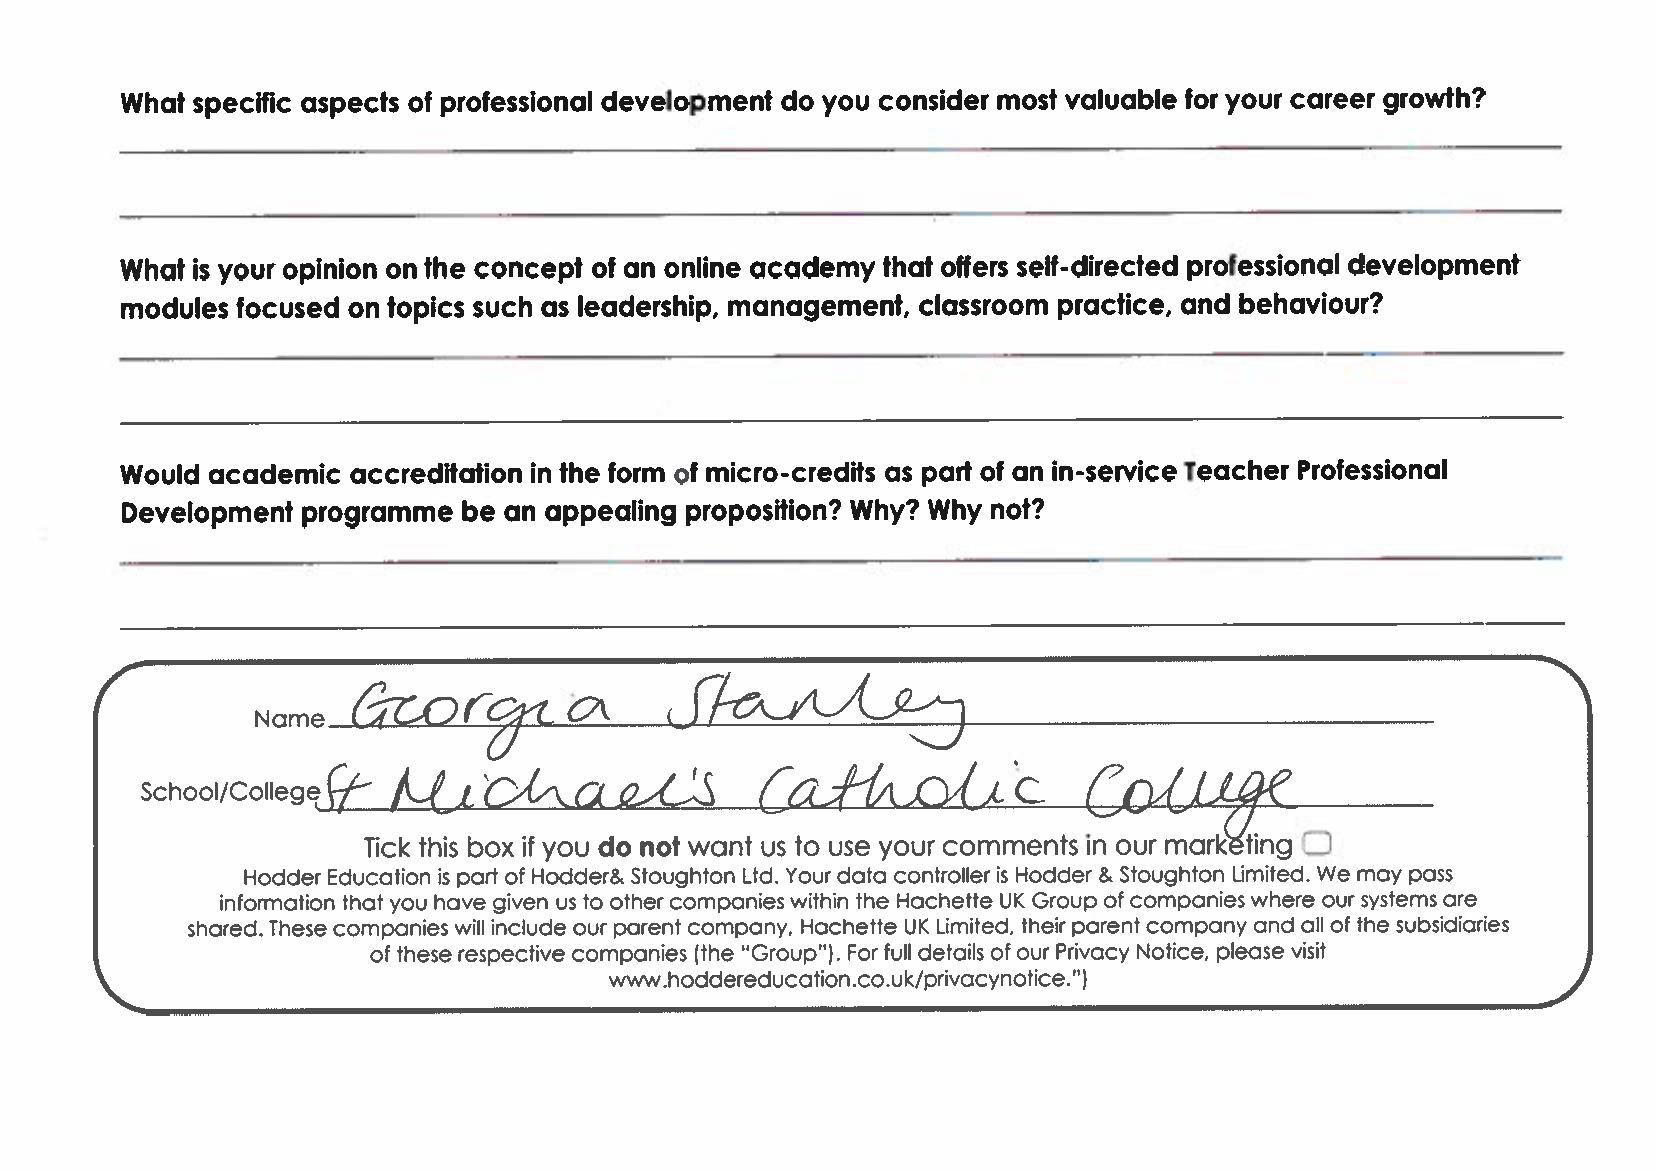 What specific aspects of professional development do you consider most valuable for your career growth?
What is your opinion on the concept of an online academy that offers self-directed professional development
modules focused on topics such as leadership, management, classroom practice, and behaviour?
Would academic accreditation in the form of micro-credits as part of an in-service Teacher Professional
Development programme be an appealing proposition? Why? Why not?
Name Georgia Stanley
School/College St Michael's Catholic College
Tick this box if you do not want us to use your comments in our marketing
Hodder Education is part of Hodder& Stoughton Ltd. Your data controller is Hodder & Stoughton Limited. We may pass
information that you have given us to other companies within the Hachette UK Group of companies where our systems are
shared. These companies will include our parent company, Hachette UK Limited, their parent company and all of the subsidiaries
of these respective companies (the "Group"). For full details of our Privacy Notice, please visit
www.hoddereducation.co.uk/privacynotice.")